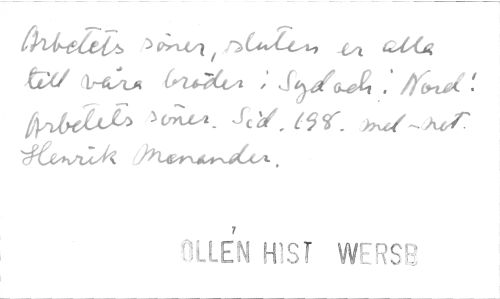 Arbetets söner, sluten er alla
till våra bröder i Syd och i Nord!
Arbetets söner. Sid. 198. med-not.
Henrik Menander.
OLLÉN HIST WERSB